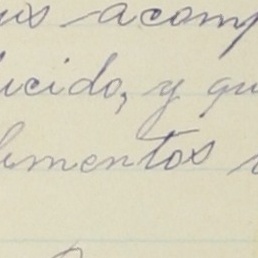 us acomp
ucido, y qu
lementos